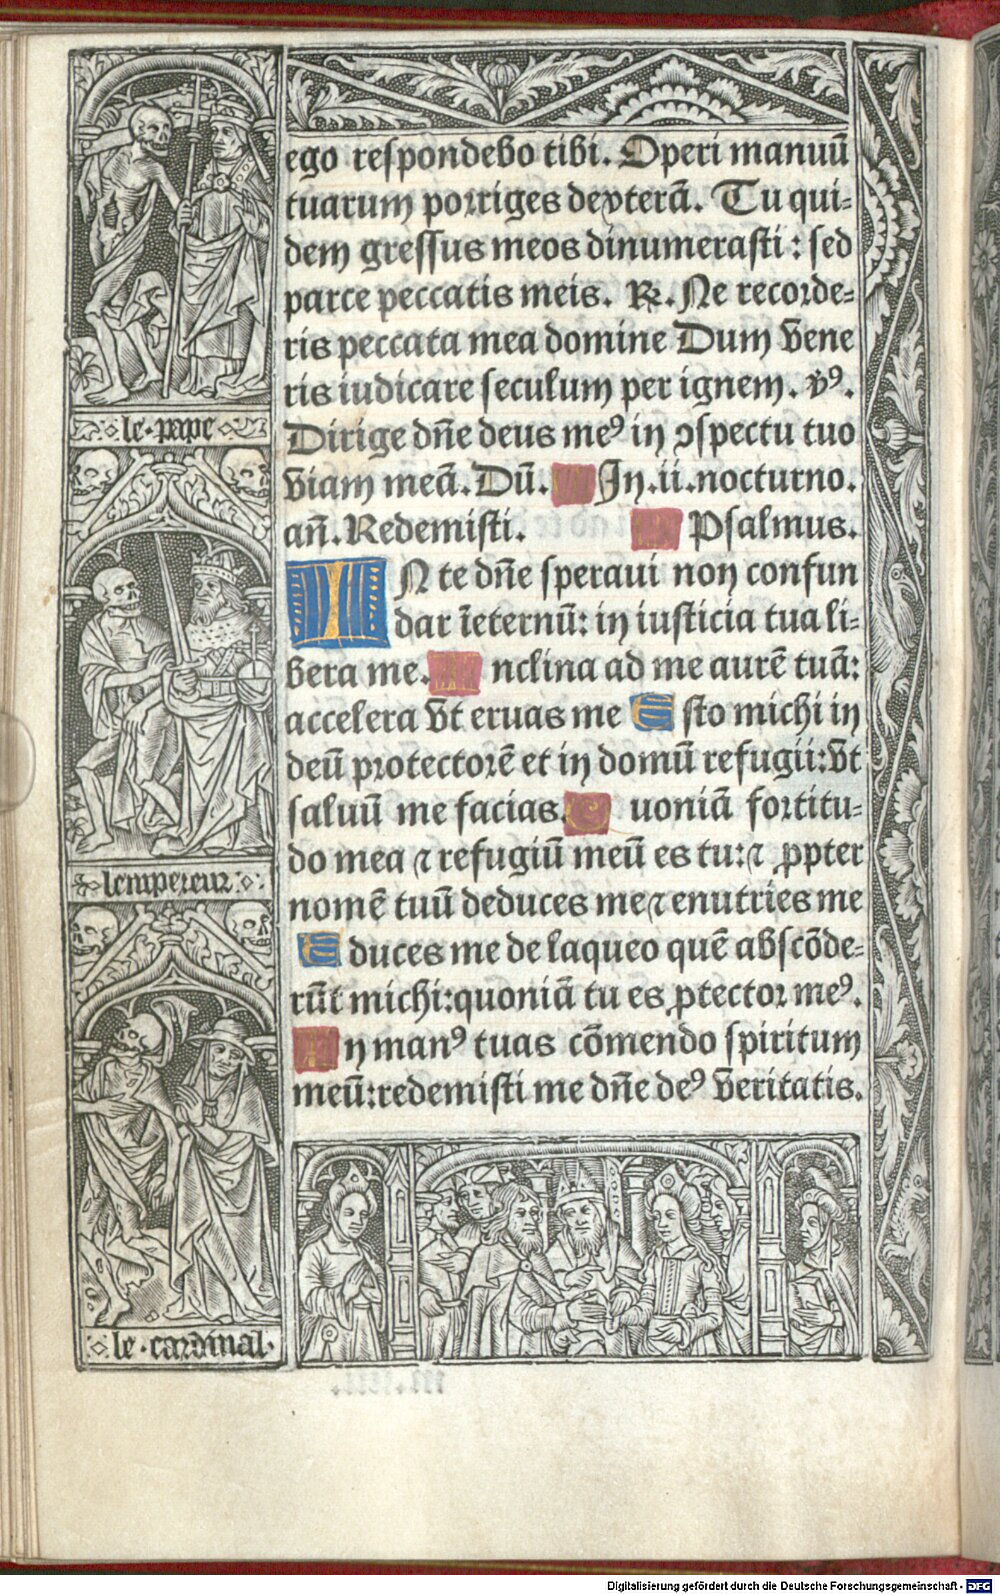 ego respondebo tibi. Operi manuũ
tuarum porriges dexterã. Tu qui-
dem gressus meos dinumerasti : sed
parce peccatis meis. ℟. Ne recorde-
ris peccata mea domine Dum vene
ris iudicare seculum per ignem. ℣ꝰ.
Dirige dñe deus meꝰ in ↄspectu tuo
viam meã. Dũ. In .ii. nocturno.
añ. Redemisti. Psalmus.
IN te dñe speraui non confun
dar ĩeternũ: in iusticia tua li-
bera me. Inclina ad me aurẽ tuã:
accelera vt eruas me Esto michi in
deũ protectorẽ et in domũ refugii: vt
saluũ me facias. Quoniã fortitu-
do mea ⁊ refugiũ meũ es tu: ⁊ ꝓpter
nomẽ tuũ deduces me ⁊ enutries me
Educes me de laqueo quẽ abscõde-
rũt michi: quoniã tu es ꝓtector meꝰ.
In manꝰ tuas cõmendo spiritum
meũ: redemisti me dñe deꝰ veritatis.
le pape
lempereur
le cardinal
Digitalisierung gefördert durch die Deutsche Forschungsgemeinschaft - DFG